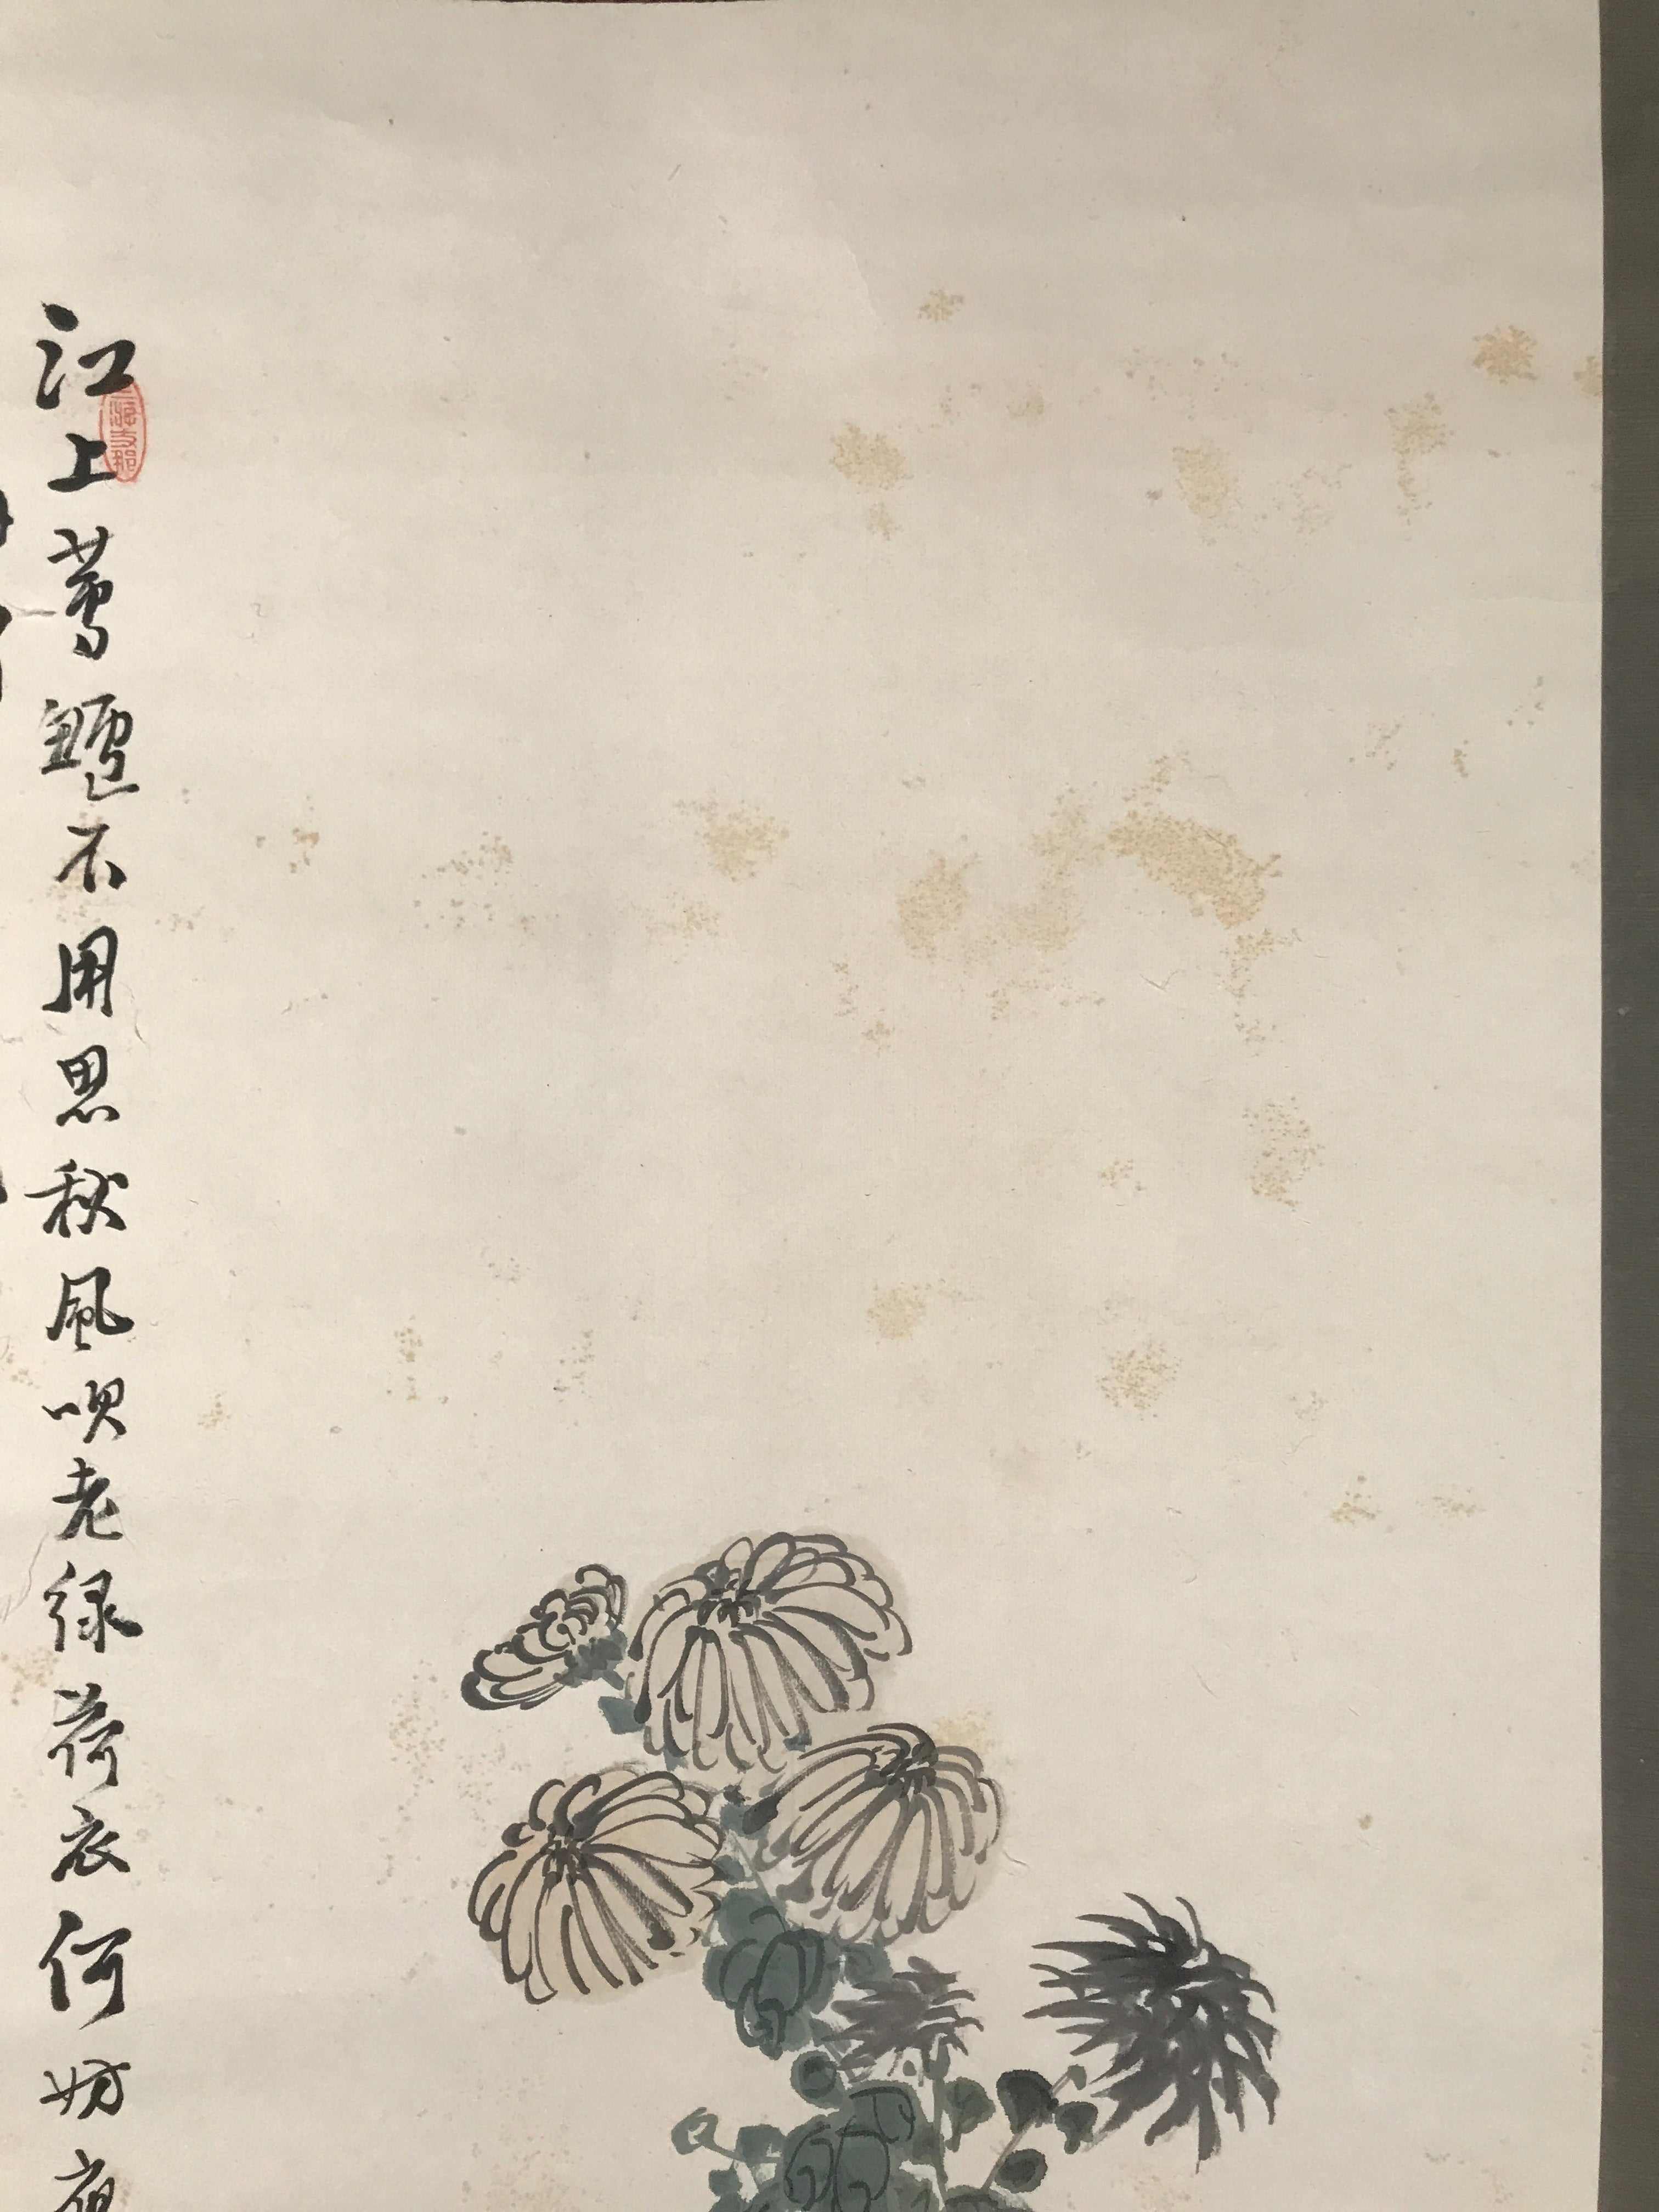 江上蓴鱸不用思秋風吹老緑荷衣何妨夜